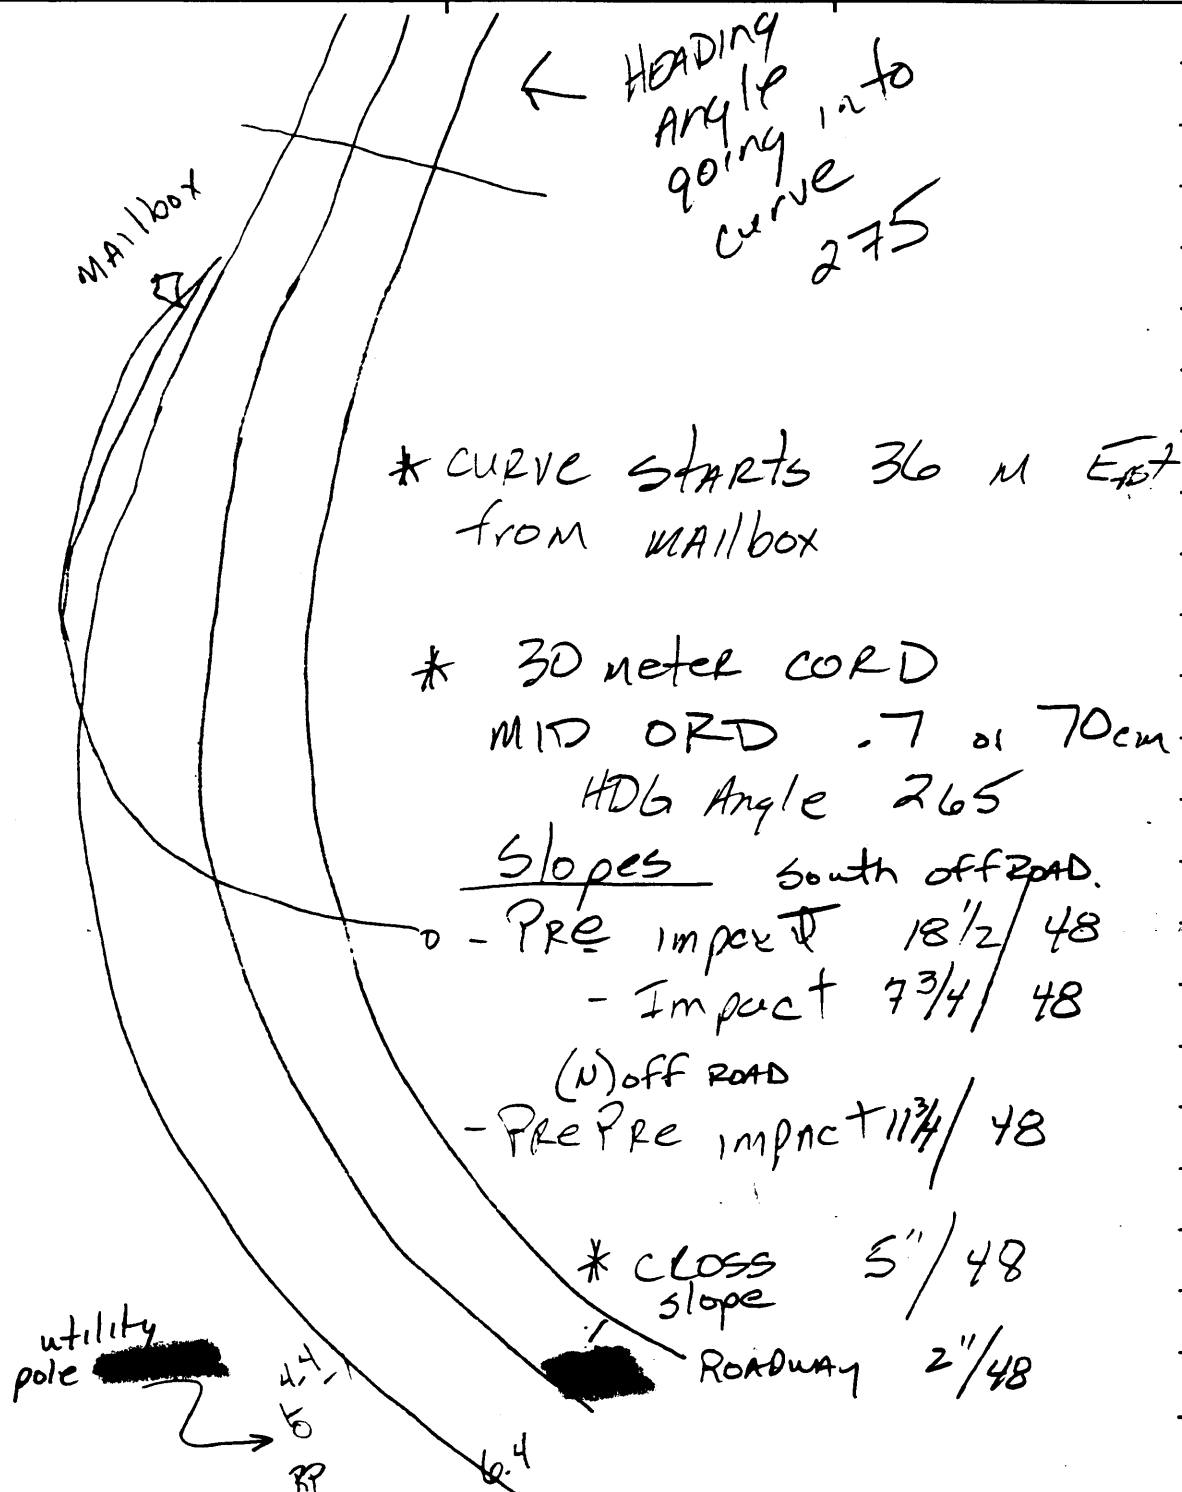 HEADING
Angle
going into
curve
275
MAilbox
* CURVE STARTS 36 M EAST
from MAilbox
* 30 meter CORD
MID ORD .7 or 70cm
HDG Angle 265
Slopes South off ROAD.
- PRe impact 18 1/2 / 48
- Impact 7 3/4 / 48
(N) off ROAD
- PRe PRe impact 11 3/4 / 48
* CROSS 5"/48
slope
ROADWAY 2"/48
utility
pole
RP
6.4